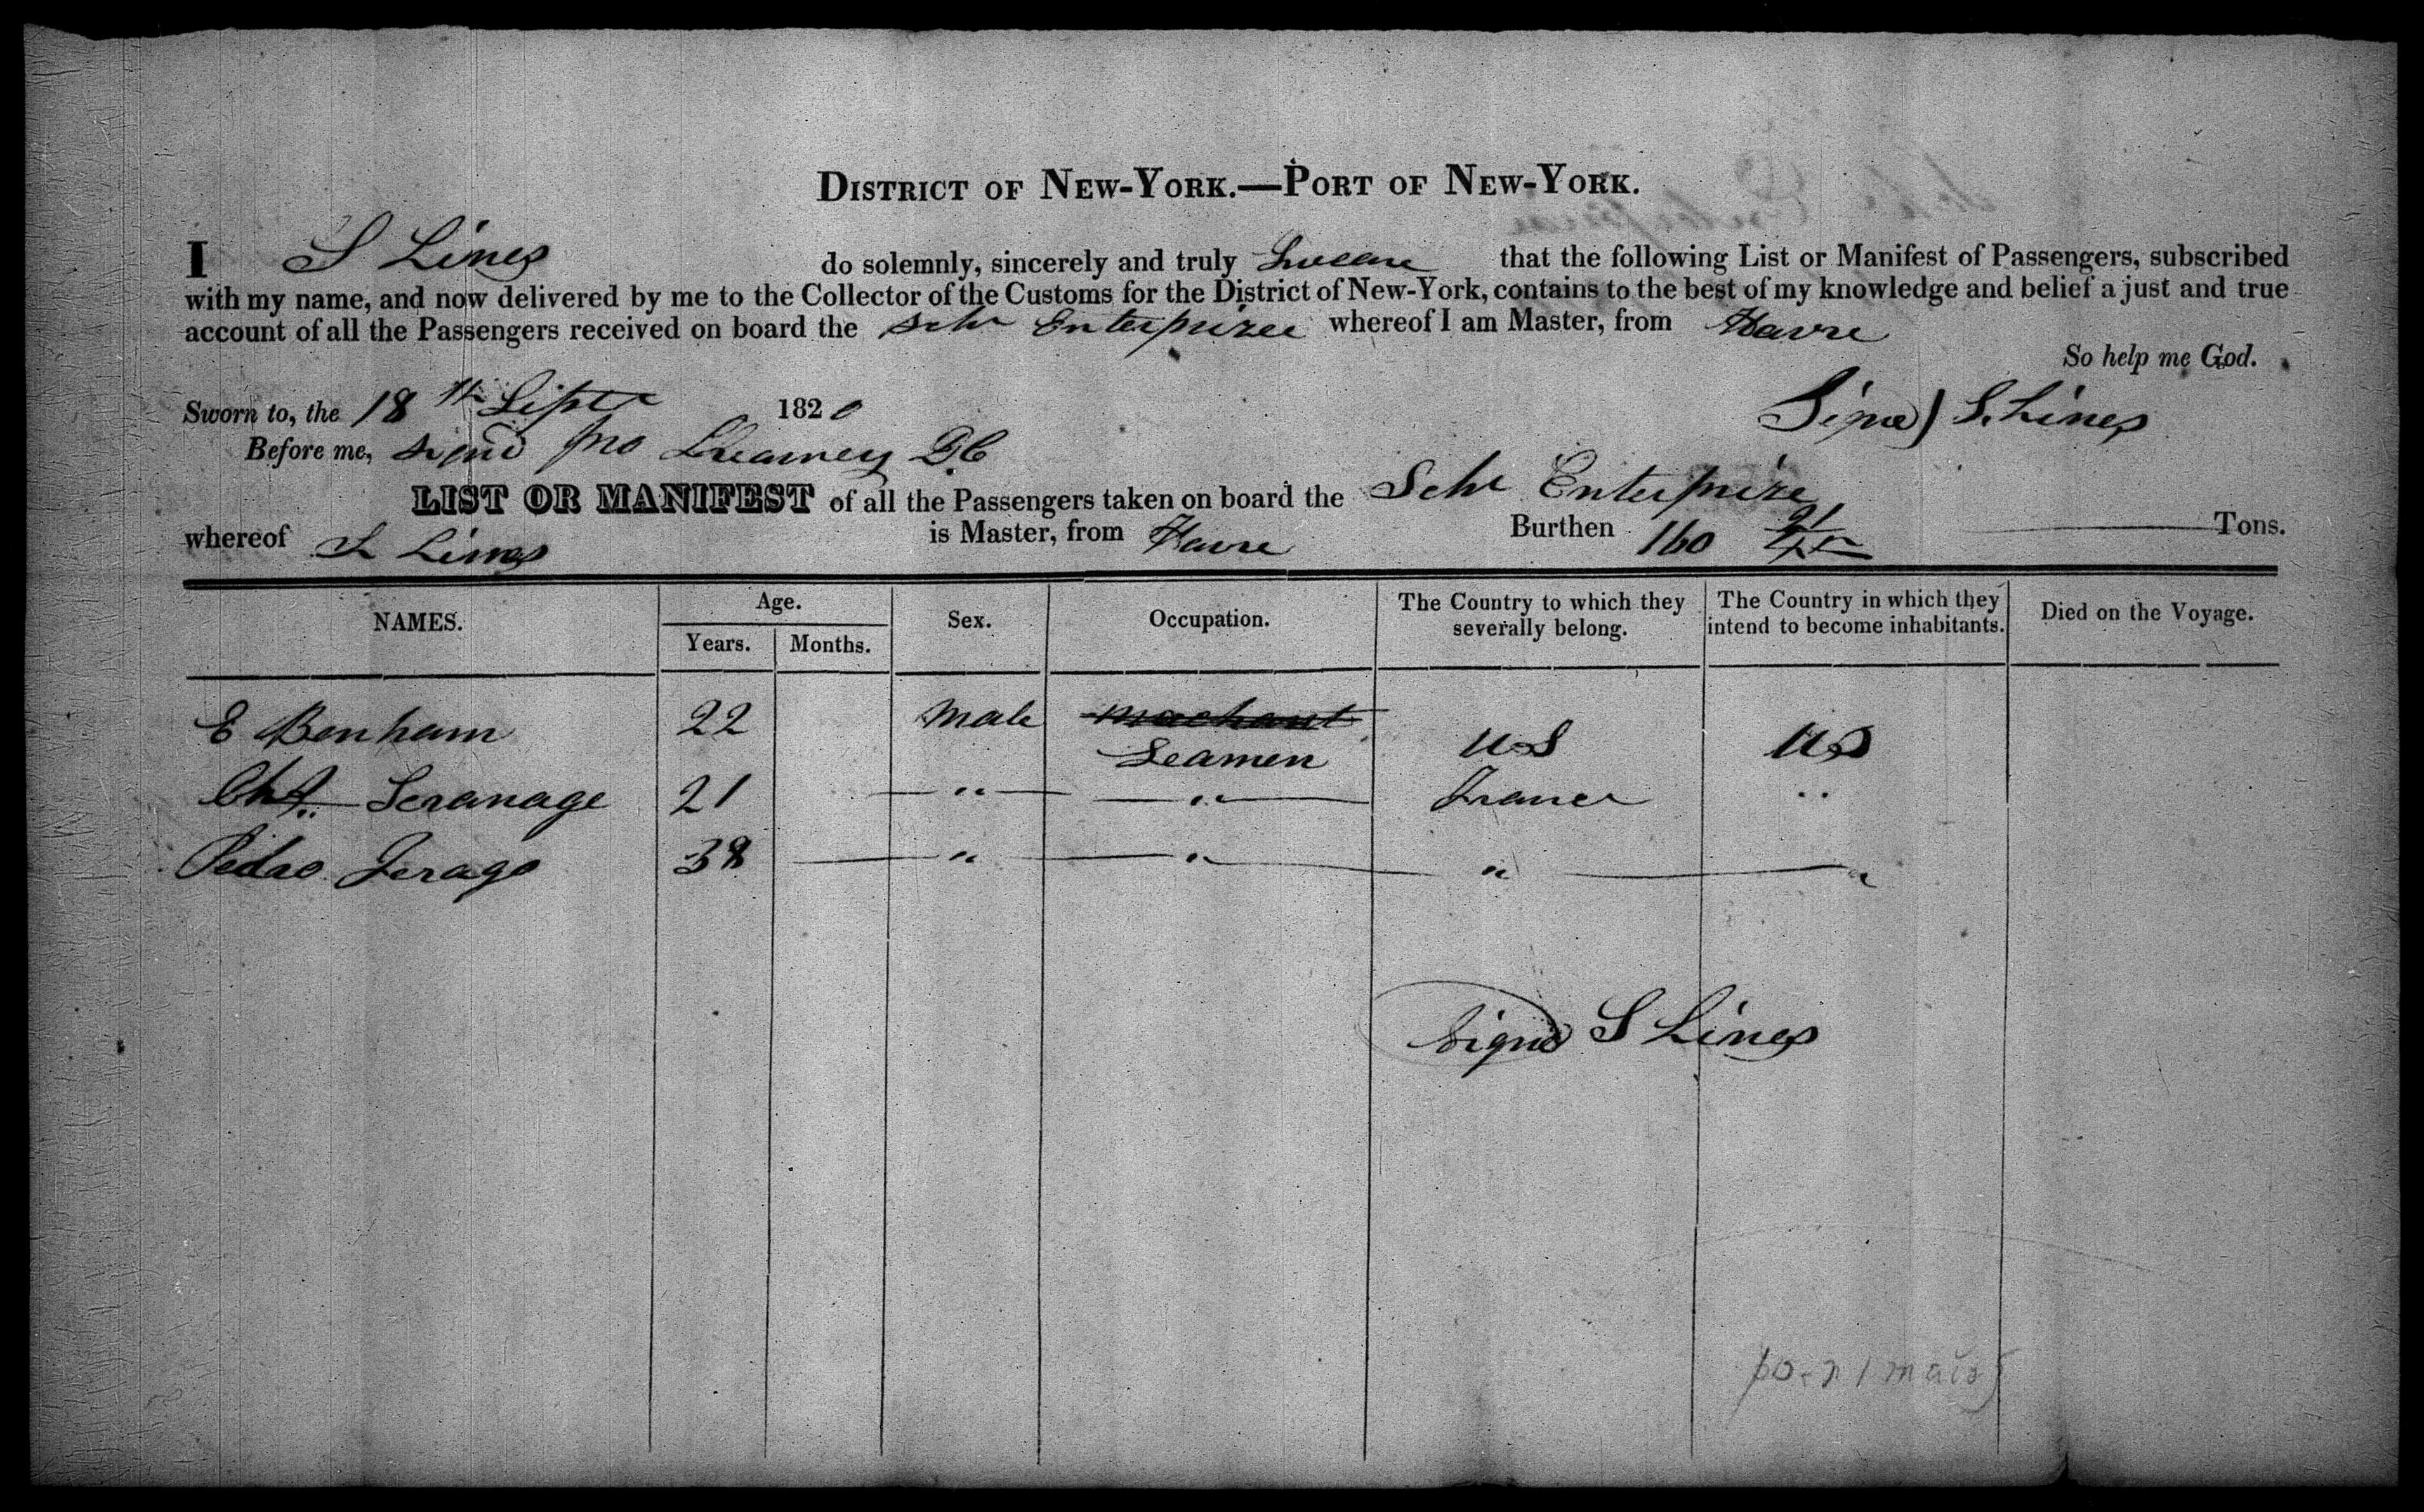 DISTRICT OF NEW-YORK.—PORT OF NEW-YORK.
I S Lines do solemnly, sincerely and truly Swear that the following List or Manifest of Passengers, subscribed
with my name, and now delivered by me to the Collector of the Customs for the District of New-York, contains to the best of my knowledge and belief a just and true
account of all the Passengers received on board the Schr Enterprize whereof I am Master, from Havre
So help me God.
Sworn to, the 18th Septr 1820 Signd) S. Lines
Before me, Signd Jno Kearney D.C
LIST OR MANIFEST of all the Passengers taken on board the Schr Enterprize
whereof S Lines is Master, from Havre Burthen 160 Tons.
NAMES. Age. Sex. Occupation. The Country to which they severally belong. The Country in which they intend to become inhabitants. Died on the Voyage.
Years. Months.
E Benham 22 Male Merchant
Seamen US US
Seranage 21 " " France "
Pedro Jerago 38 " " " "
Signd S Lines